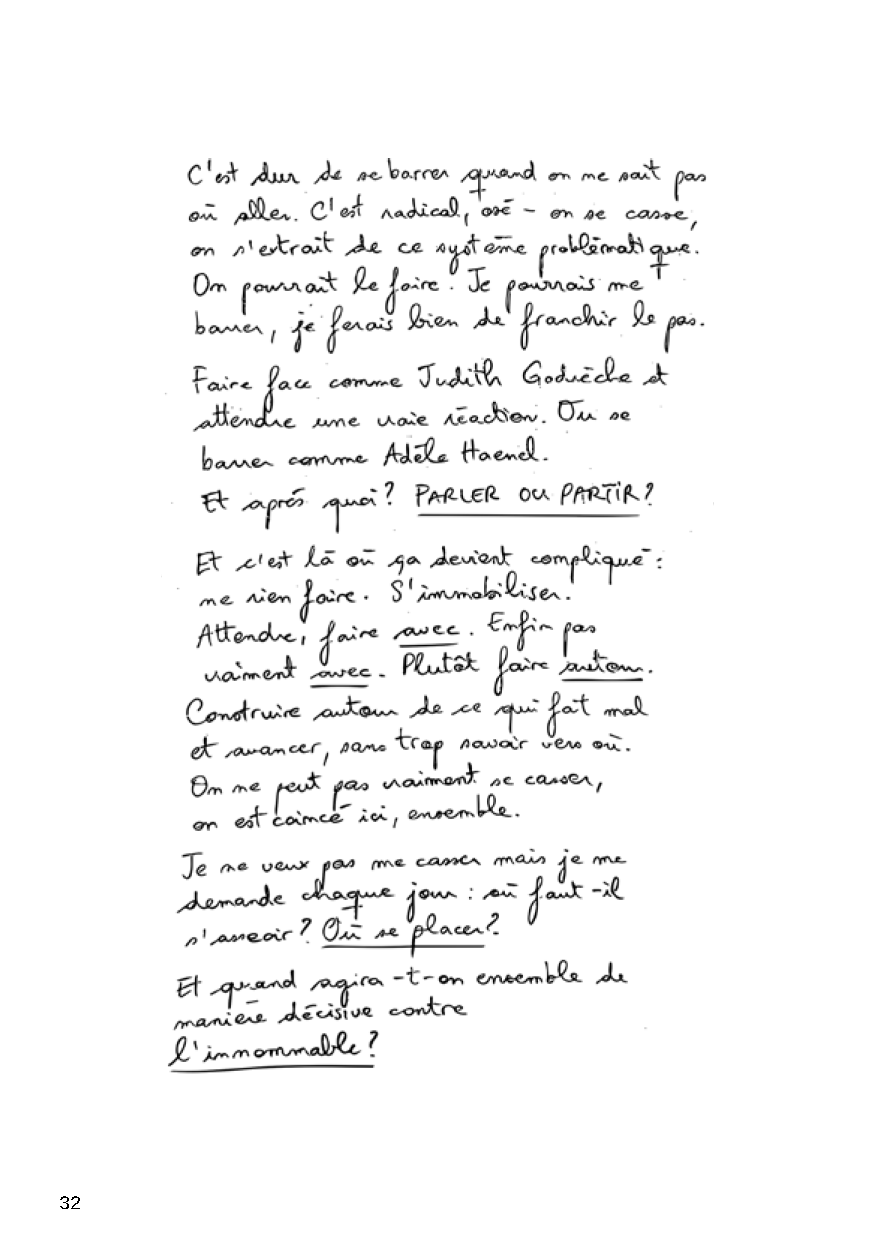 C'est dur de se barrer quand on ne sait pas
où aller. C'est radical, osé - on se casse,
on s'extrait de ce système problématique.
On pourrait le faire. Je pourrais me
barrer, je ferais bien de franchir le pas.
Faire face comme Judith Godrèche et
attendre une vraie réaction. Ou se
barrer comme Adèle Haenel.
Et après quoi? PARLER OU PARTIR?
Et c'est là où ça devient compliqué:
ne rien faire. S'immobiliser.
Attendre, faire avec. Enfin pas
vraiment avec. Plutôt faire autour.
Construire autour de ce qui fait mal
et avancer, sans trop savoir vers où.
On ne peut pas vraiment se casser,
on est coincé ici, ensemble.
Je ne veux pas me casser mais je me
demande chaque jour: où faut-il
s'asseoir? Où se placer?
Et quand agira-t-on ensemble de
manière décisive contre
l'innommable?
32